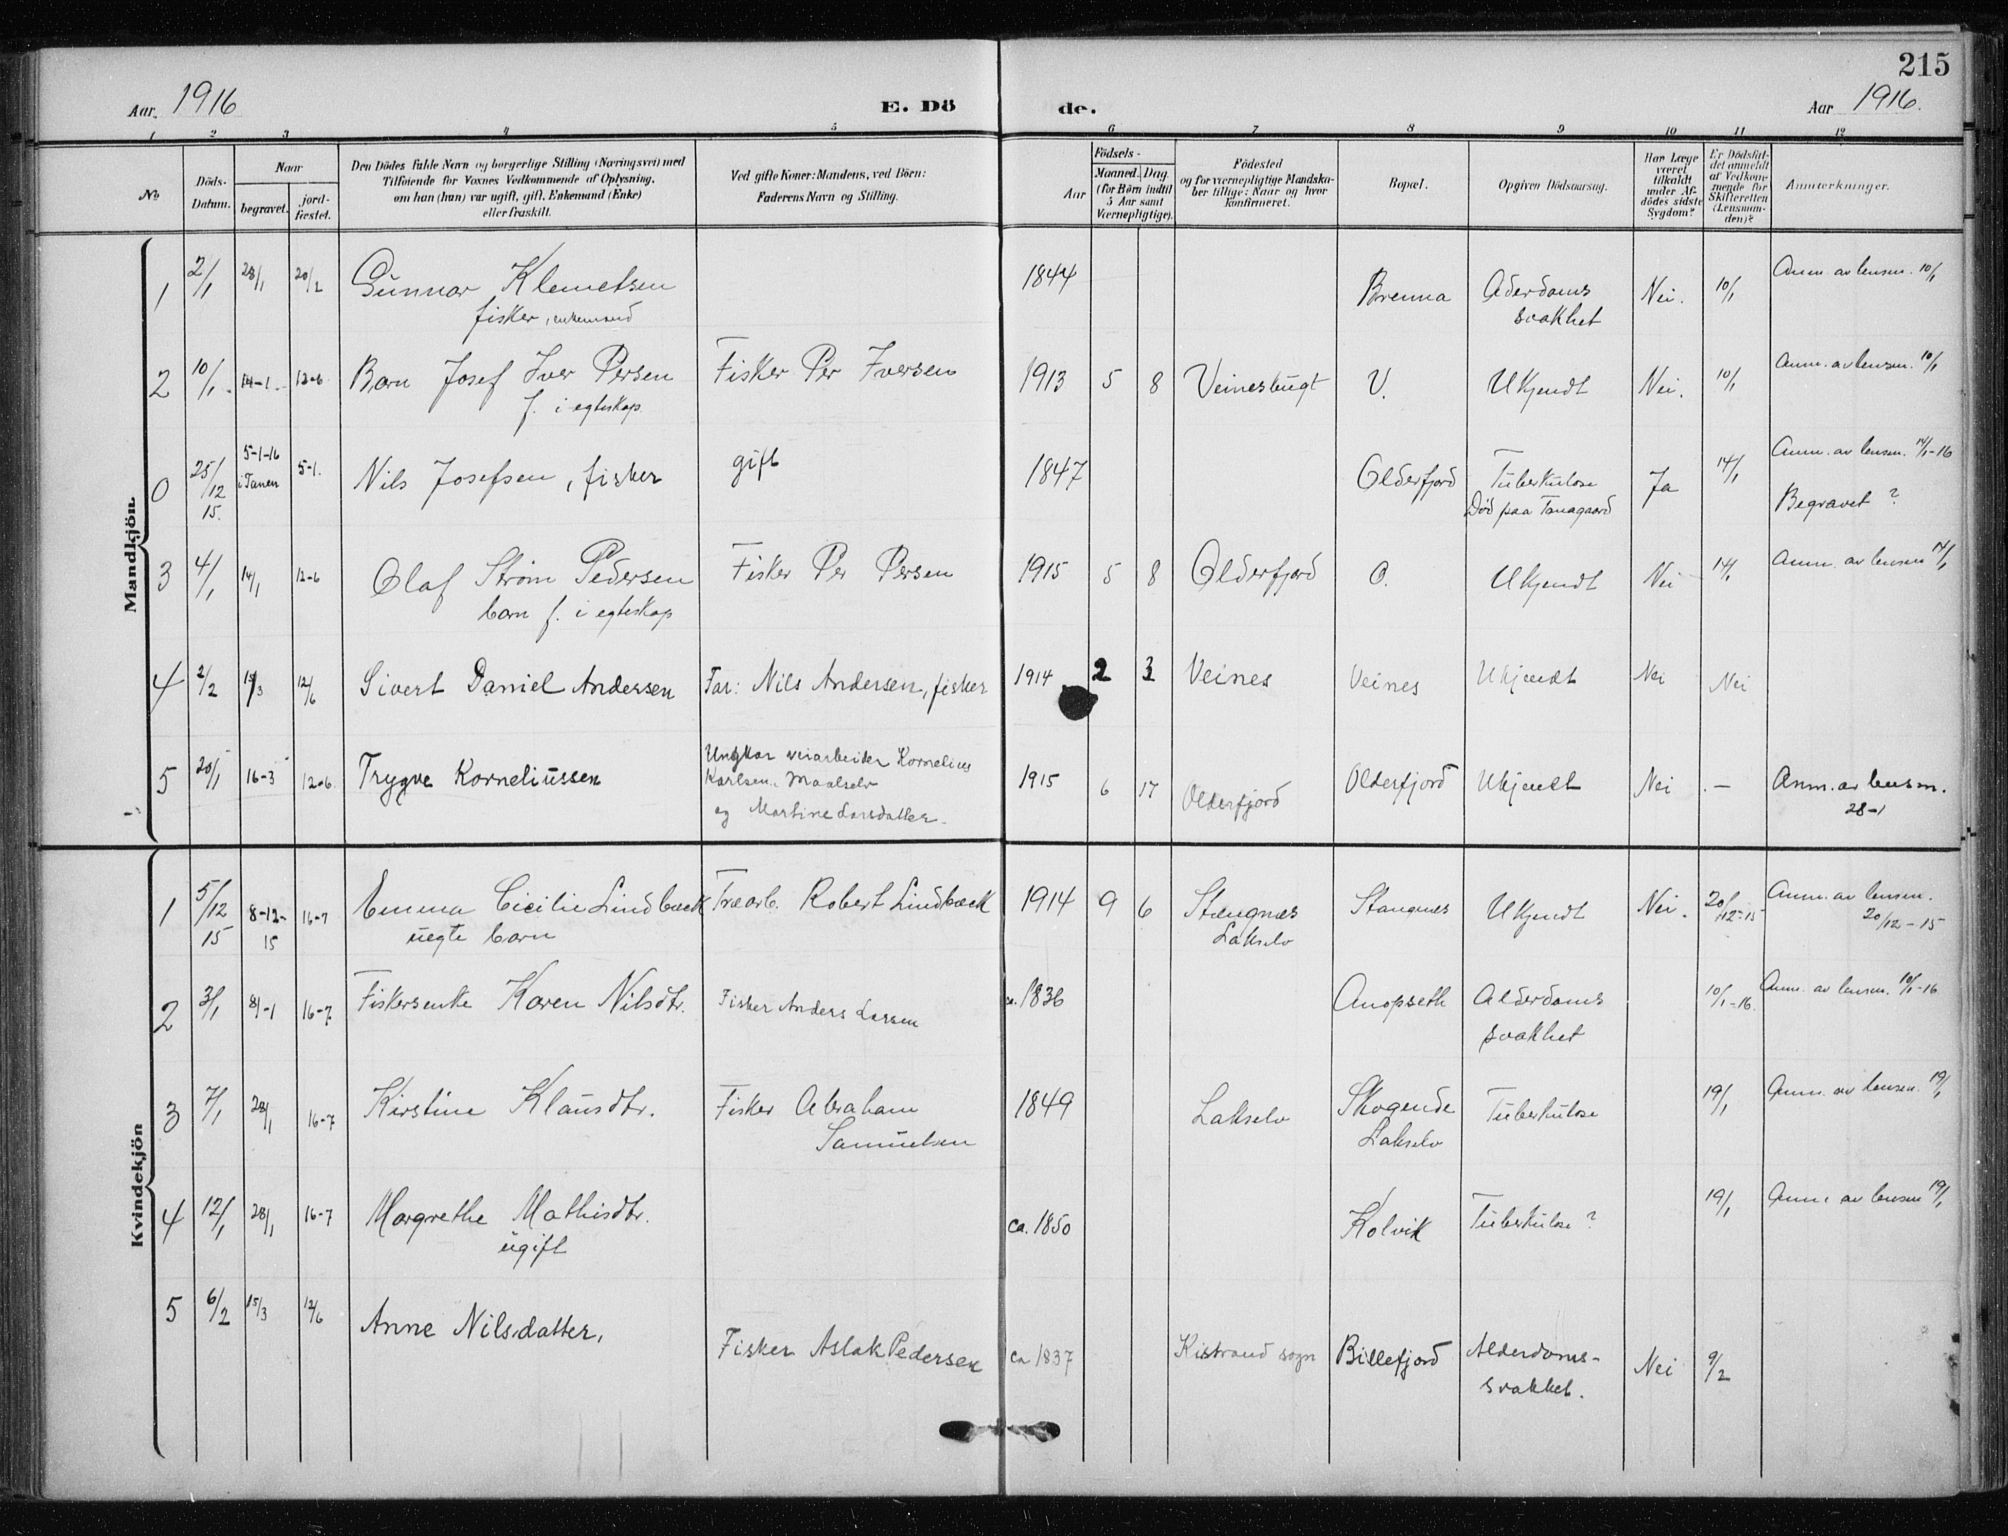 215
Aar. 1916 E. Dö de. Aar 1916.
1 2 3 4 5 6 7 8 9 10 11 12
No
Döds-
Datum.
Naar
begravet.
jord-
fæstet.
Den Dödes fulde Navn og borgerlige Stilling (Næringsvei) med
Tilföiende for Voxnes Vedkommende af Oplysning,
om han (hun) var ugift, gift, Enkemand (Enke)
eller fraskilt.
Ved gifte Koner: Mandens, ved Börn:
Faderens Navn og Stilling.
Födsels-
Aar
Maaned. Dag.
(for Börn indtil
5 Aar samt
Værnepligtige).
Födested
og for værnepligtige Mandska-
ber tillige: Naar og hvor
konfirmeret.
Bopæl.
Opgiven Dödsaarsag.
Har Læge
været
tilkaldt
under Af-
dödes sidste
Sygdom?
Er Dödsfal-
det anmeldt
af Vedkom-
mende for
Skifteretten
(Lensman-
den)?
Anmærkninger.
Mandkjön.
1 2/1 28/1 20/2 Gunnar Klemetsen 1844 Brenna Alderdoms Nei. 10/1 Anm. av lensm. 10/1
fisker, enkemand svakhet
2 10/1. 14-1. 12-6 Barn Josef Iver Persen Fisker Per Iversen 1913 5 8 Veinesbugt V. Ukjendt Nei. 10/1 Anm. av lensm. 10/1
f. i egteskap.
0 25/12 15. 5-1-16 i Tanen 5-1. Nils Josefsen, fisker gift 1847 Olderfjord Tuberkulose Ja 14/1 Anm. av lensm. 14/1-16
Död paa Tanagaard Begravet ?
3 4/1 14/1 12-6 Olaf Ström Pedersen Fisker Per Persen 1915 5 8 Olderfjord O. Ukjendt Nei 14/1 Anm. av lensm 14/1
barn f. i egteskap
4 2/2 /3 12/6 Sivert Daniel Andersen Far: Nils Andersen, fisker 1914 2 3 Veines Veines Ukjendt Nei Nei
5 20/1 16-3 12-6. Trygve Korneliussen Ungkar veiarbeider Kornelius
Karlsen, Maalselv
og Martine Larsdatter. 1915 6 17 Olderfjord Olderfjord Ukjendt Nei . — Anm. av lensm.
28-1
Kvindekjön
1 5/12 15 8-12-15 16-7 Emma Cicilie Lindbæk Træarb. Robert Lindbæk 1914 9 6 Stangnes Stangnes Ukjendt Nei. 20/12-15 Anm. av lensm.
uegte barn Lakselv 20/12-15
2 3/1 8/-1 16-7 Fiskersenke Karen Nilsdtr. Fisker Anders Larsen ca. 1836 Anopseth Alderdoms 10/1-16. Anm. av lensm. 10/1-16
svakhet
3 7/1 28/1 16-7 Kirstine Klausdtr. Fisker Abraham 1849 Lakselv Skogende Tuberkulose 19/1 Anm. av lensm. 19/1
Samuelsen Lakselv
4 12/1 28/1 16-7 Margrethe Mathisdtr. ca. 1850 Kolvik Tuberkulose ? 19/1 Anm. av lensm 19/1
ugift
5 6/2 15/3 12/6 Anne Nilsdatter, Fisker Aslak Pedersen ca 1837 Kistrand sogn Billefjord Alderdoms- Nei 9/2
svakhet.